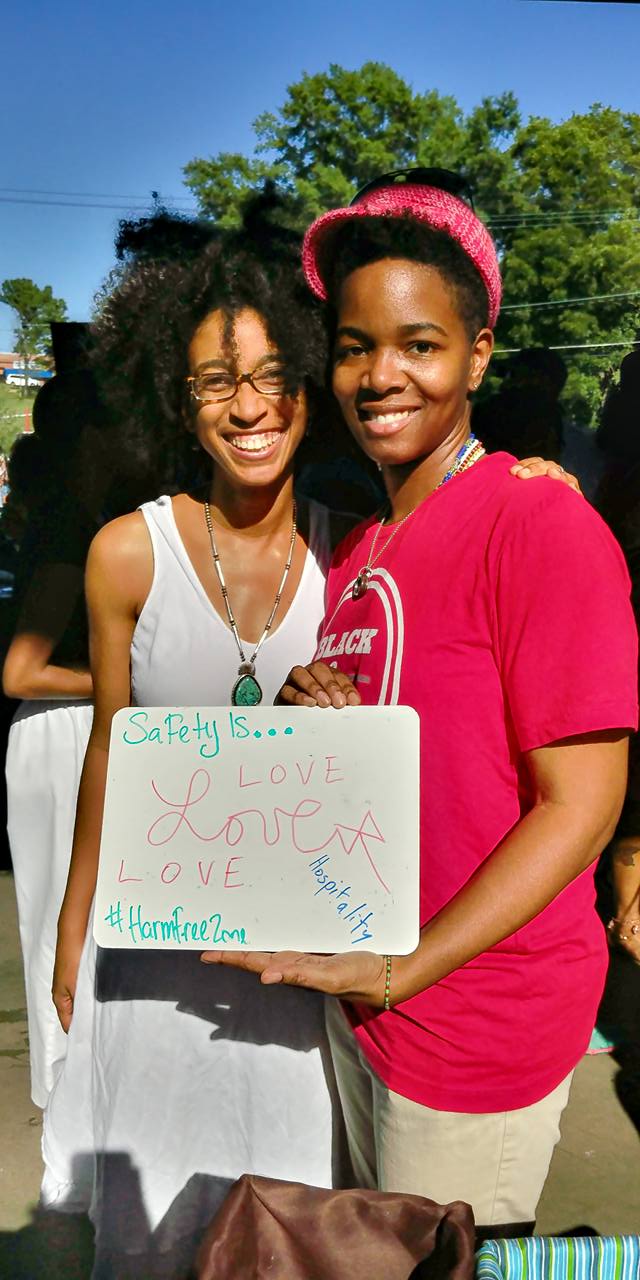 BLACK
Safety Is...
LOVE
Love
LOVE
Hospitality
#HarmFreeZone